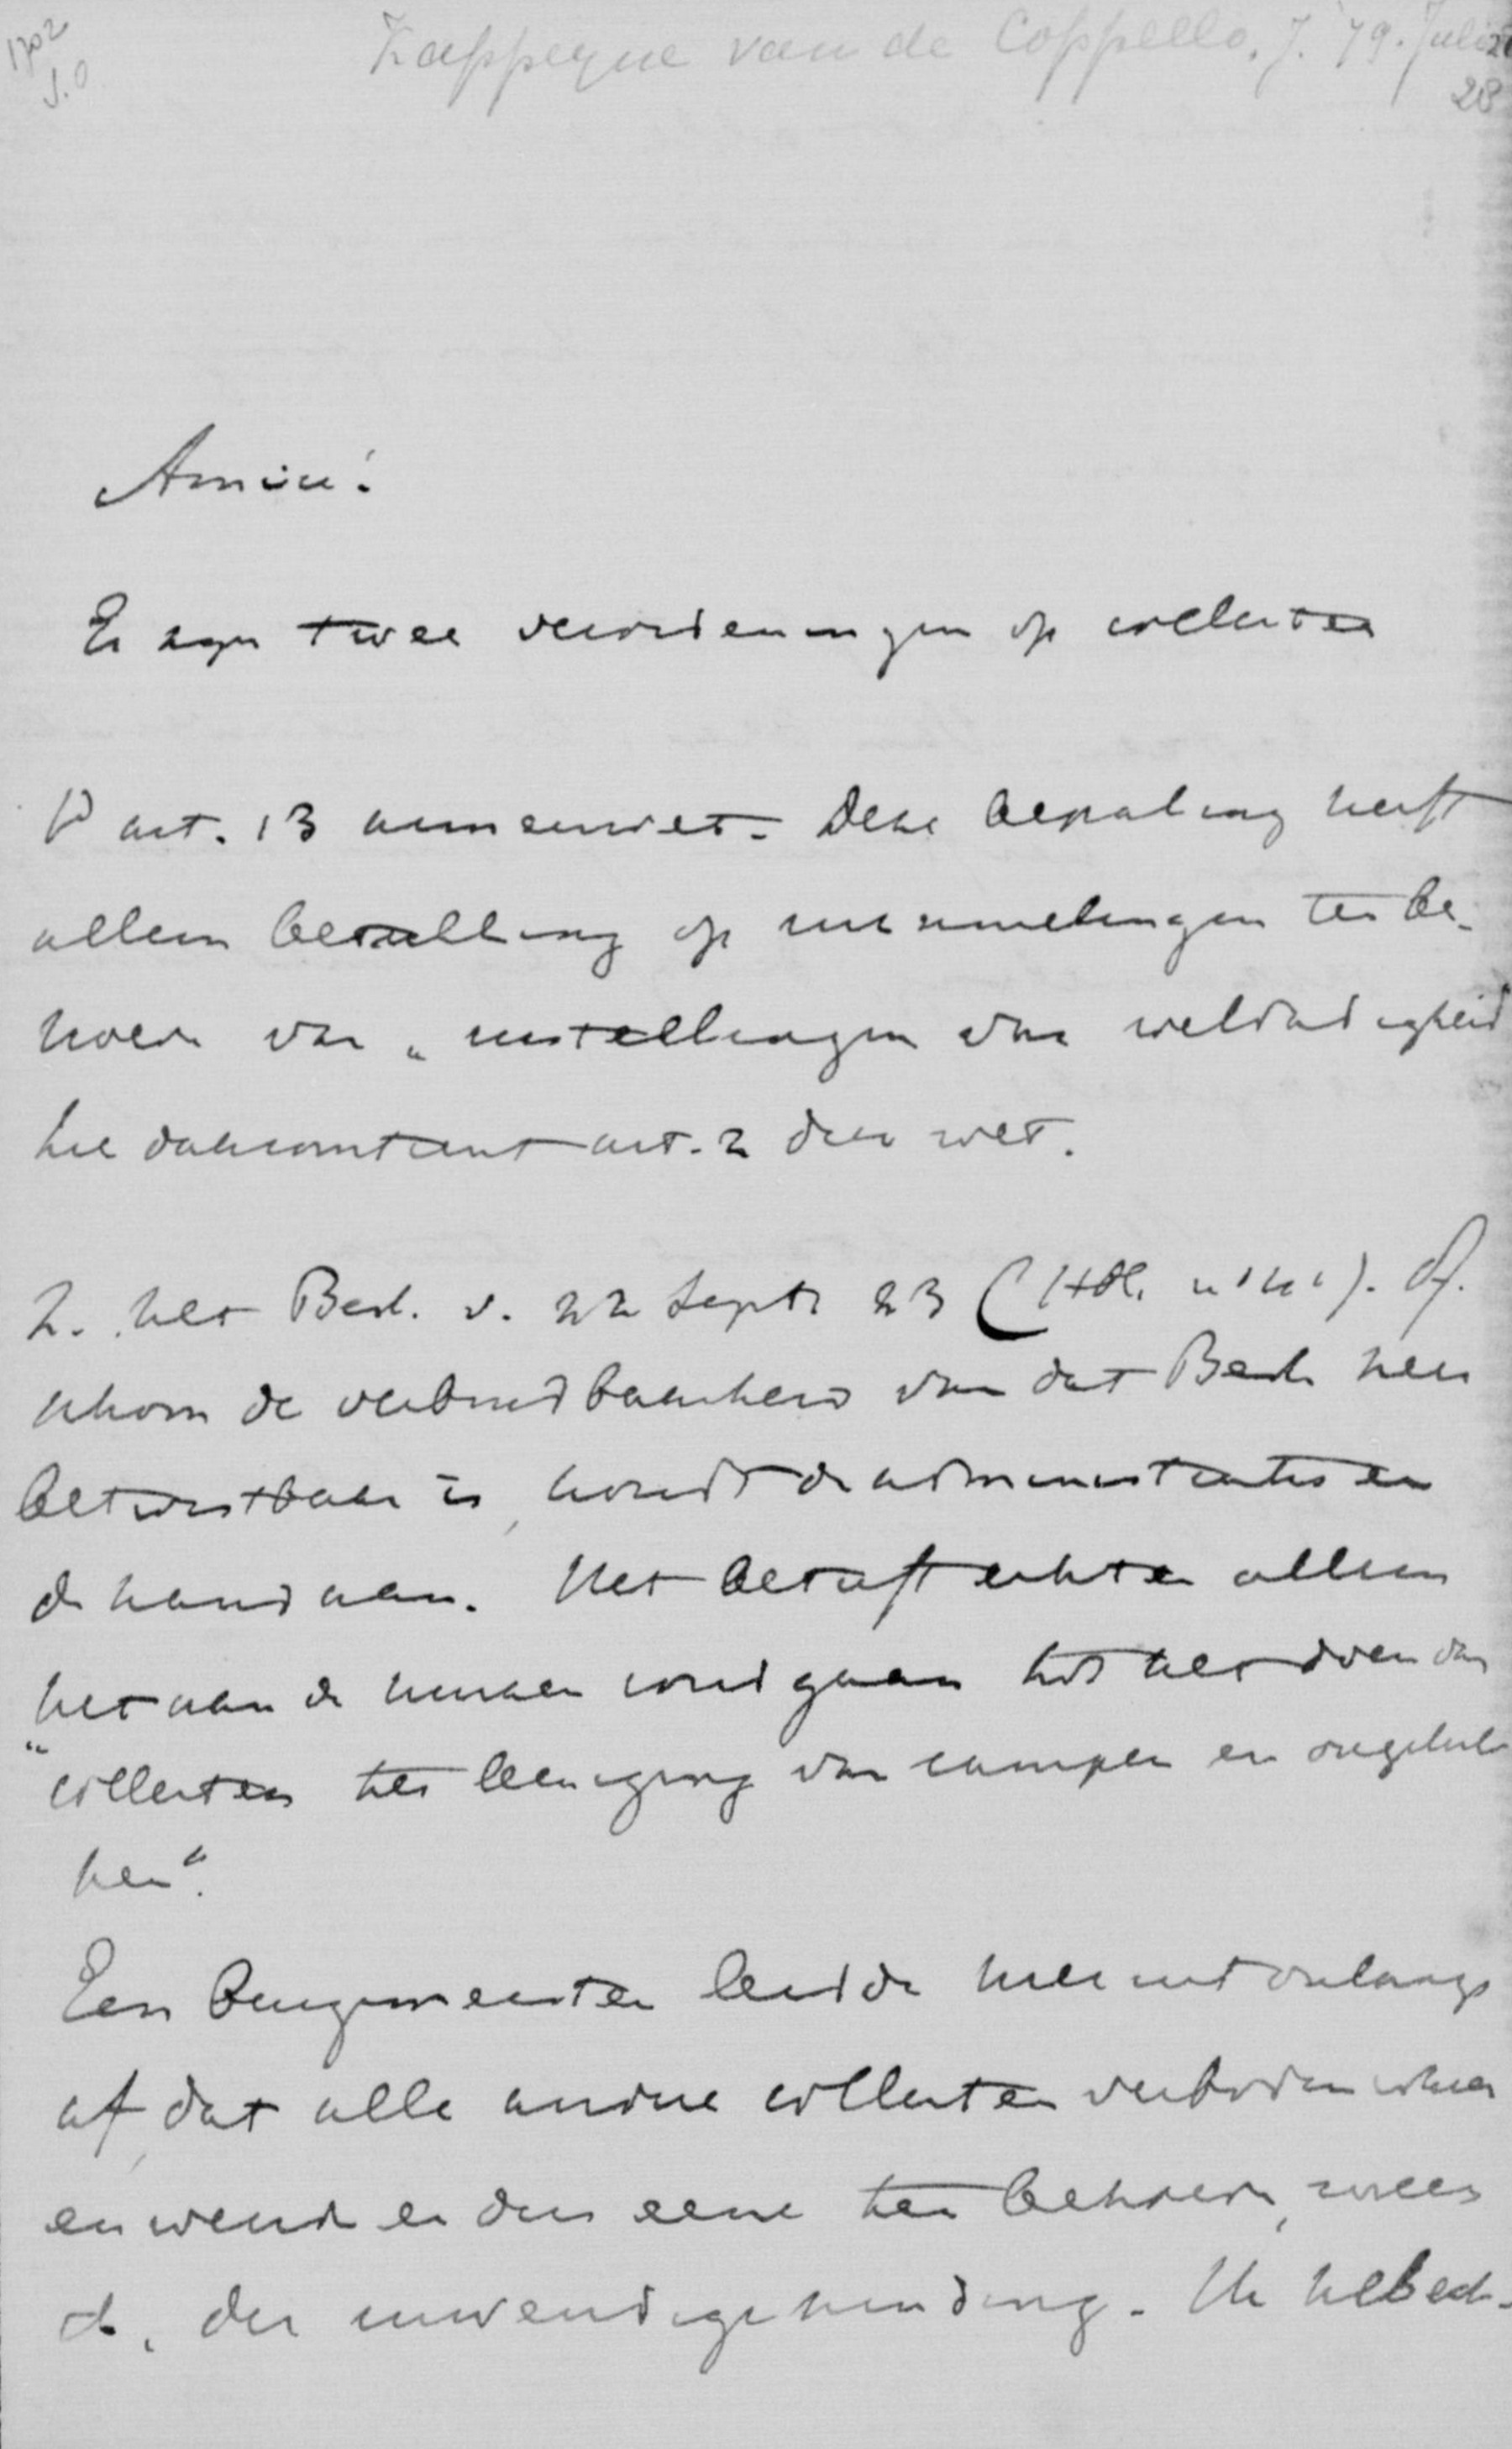 1702
J.O
Kappeyne van de Coppello. J. '79. Juli 28
28
Amice!
Er zijn twee verordeningen op collecten
1o art. 13 armenwet. Deze bepaling heeft
alleen betrekking op inzamelingen ten be-
hoeve van "instellingen van weldadigheid
zie daaromtrent art. 2 dier wet.
2. het Besl. v. 22 Septr 23 (Stbl. no 41). Of-
schoon de verbindbaarheid van dat Besl. zeer
betwistbaar is, houdt de administratie er
de hand aan. Het betreft echter alleen
het aan de huizen rondgaan tot het doen van
"collecten ter leeniging van rampen en ongeluk-
ken".
Een burgemeester leidde hier uit onlangs
af, dat alle andere collecten verboden waren
en weerde er dus eene ten behoeve, zweer
ik, der inwendige zending. Ik heb ech-